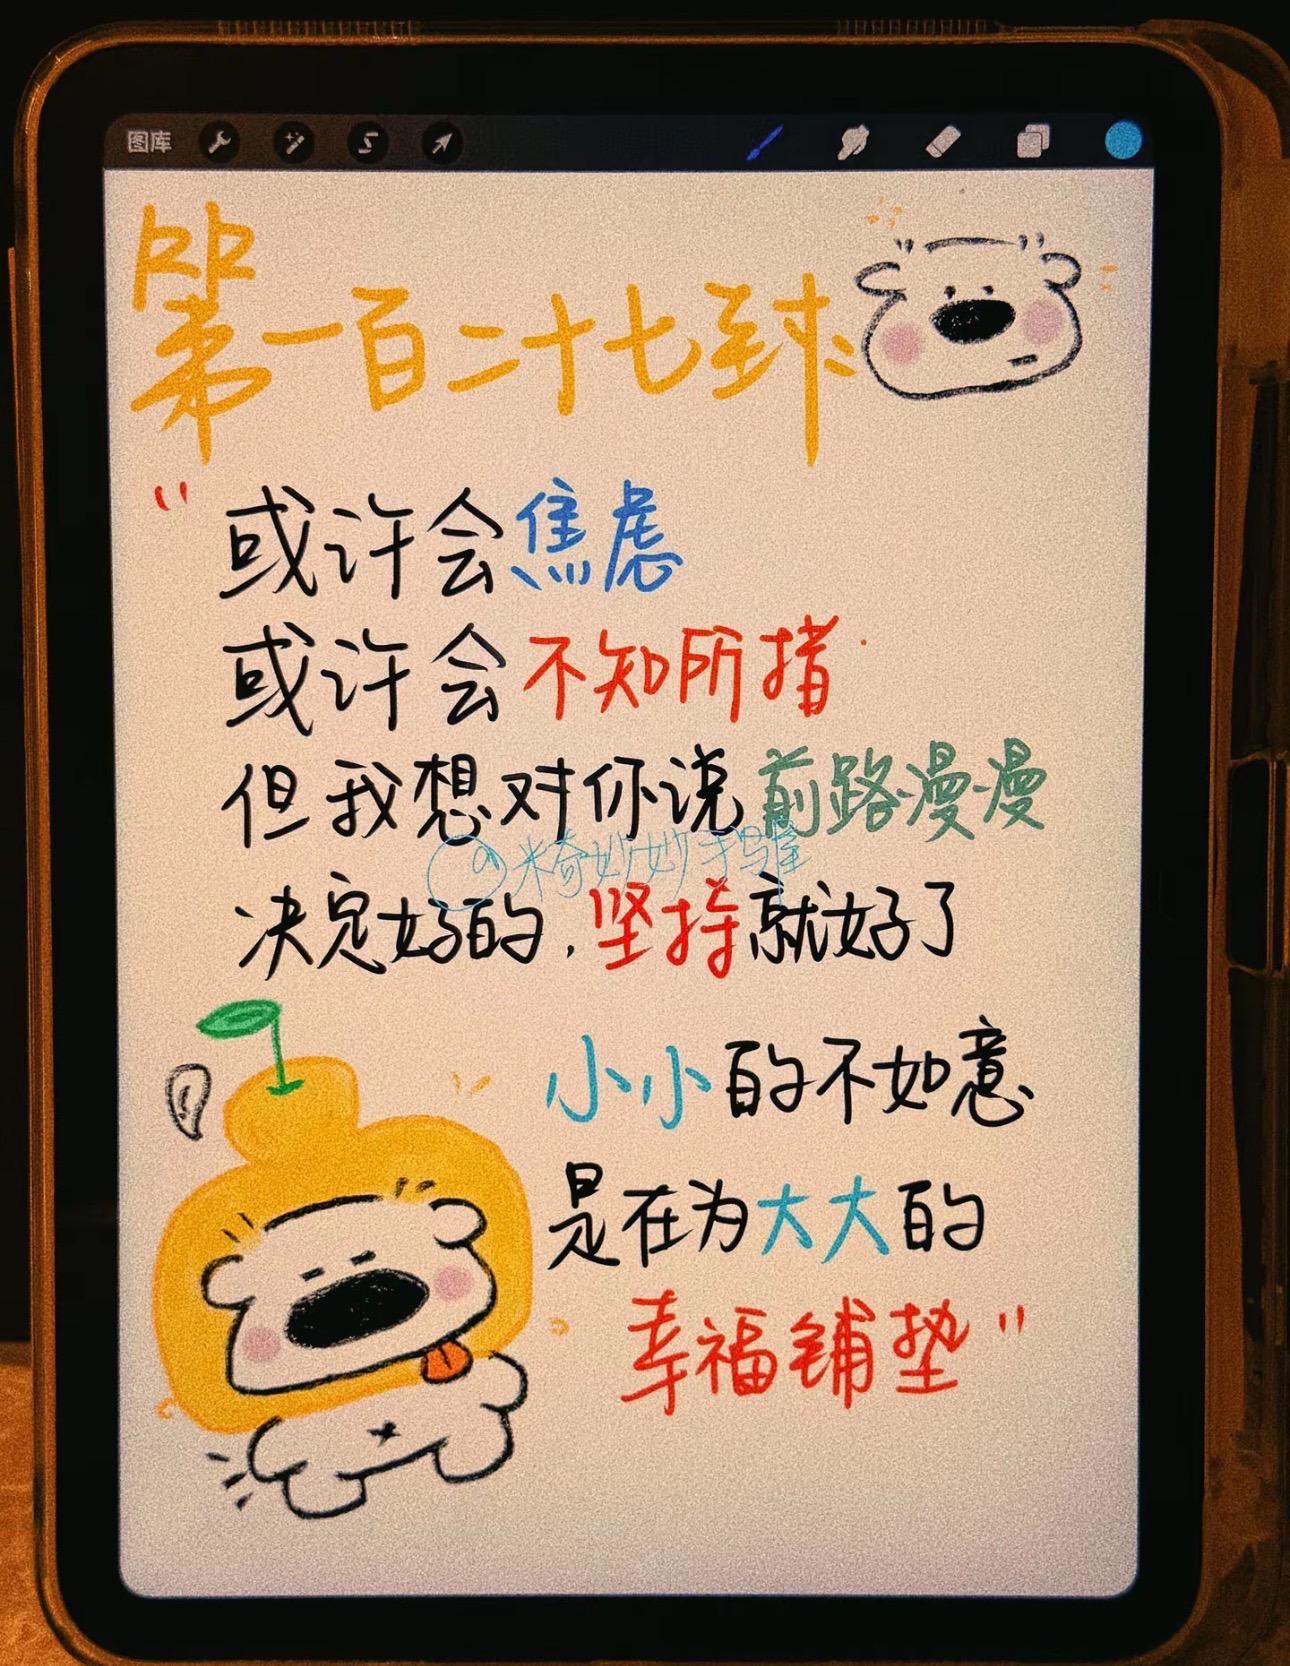 图库
第一百二十七封:
“或许会焦虑
或许会不知所措
但我想对你说前路漫漫
@米奇妙妙
决定好的,坚持就好了
小小的不如意
是在为大大的
幸福铺垫”